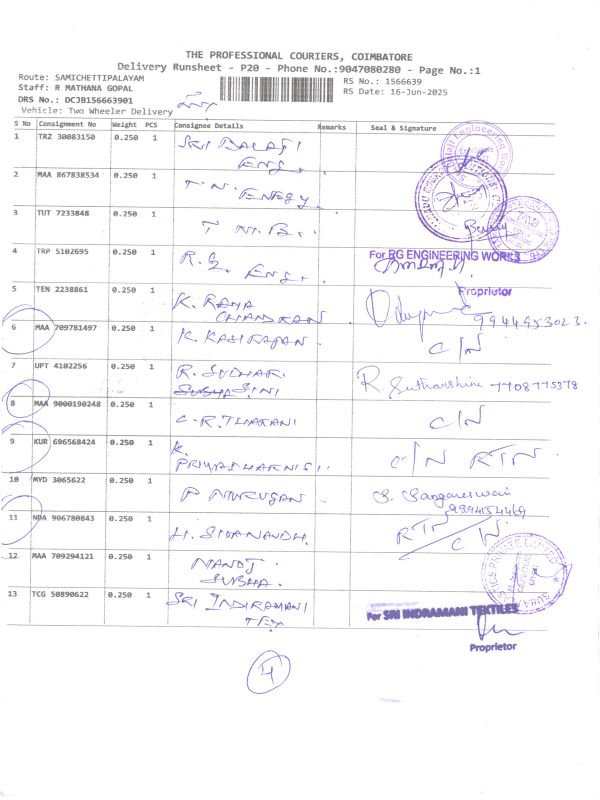 THE PROFESSIONAL COURIERS, COIMBATORE
Delivery Runsheet - P20 - Phone No.:9047080280 - Page No.:1
Route: SAMICHETTIPALAYAM
Staff: R MATHANA GOPAL
DRS No.: DCJB156663901
Vehicle: Two Wheeler Delivery
RS No.: 1566639
RS Date: 16-Jun-2025
S No Consignment No Weight PCS Consignee Details Remarks Seal & Signature
1 TRZ 30083150 0.250 1 SRI BALAJI
ENG.
2 MAA 867838534 0.250 1 T.N. ENERGY
3 TUT 7233848 0.250 1 T N. B.
4 TRP 5102695 0.250 1 R.G. ENG. For RG ENGINEERING WORKS
Proprietor
5 TEN 2238861 0.250 1 K. RAMA
CHANDRAN 9944953023.
6 MAA 709781497 0.250 1 K. KASIRAJAN. C/N
7 UPT 4102256 0.250 1 R. SUDHAR R. Sutharshini 7708775378
SINI
8 MAA 9000190248 0.250 1 C.R. THARANI C/N
9 KUR 696568424 0.250 1 K. C/N RTN
PRIYADHARNISI.
10 MYD 3065622 0.250 1 P MURUGAN S. Sangareswari
9994154469
11 NDA 906780843 0.250 1 H. SIVANANDH. RTN
C/N
12 MAA 709294121 0.250 1 MANOJ
SUBHA.
13 TCG 50890622 0.250 1 SRI INDIRAMANI
TEX
For SRI INDRAMANI TEXTILES
Proprietor
4